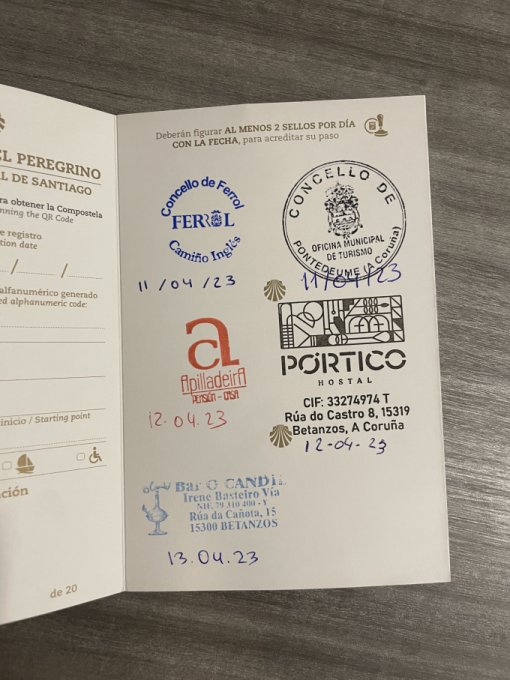 EL PEREGRINO
AL DE SANTIAGO
ra obtener la Compostela
nning the QR Code
e registro
tion date
/ / /
alfanumérico generado
ed alphanumeric code:
inicio / Starting point
ación
de 20
Deberán figurar AL MENOS 2 SELLOS POR DÍA
CON LA FECHA, para acreditar su paso
Concello de Ferrol
FERROL
Camiño Inglés
11/04/23
CONCELLO DE
OFICINA MUNICIPAL
DE TURISMO
PONTEDEUME (A Coruña)
11/04/23
a
Apilladeira
PENSIÓN - CASA
12.04.23
PÓRTICO
HOSTAL
CIF: 33274974 T
Rúa do Castro 8, 15319
Betanzos, A Coruña
12-04-23
Bar O CANDIL
Irene Basteiro Vía
NIF. 79 310 400 - Y
Rúa da Cañota, 15
15300 BETANZOS
13.04.23